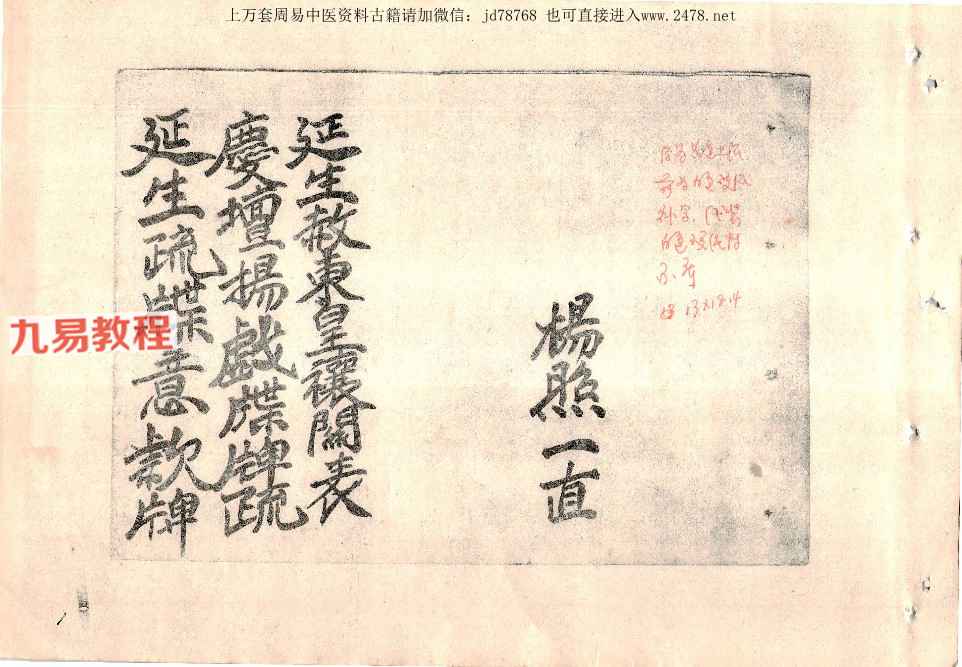 上万套周易中医资料古籍请加微信：jd78768 也可直接进入www.2478.net
楊照一直
延生赦東皇禳關表
慶壇揚戲牒牌疏
延生疏牒意款牌
九易教程